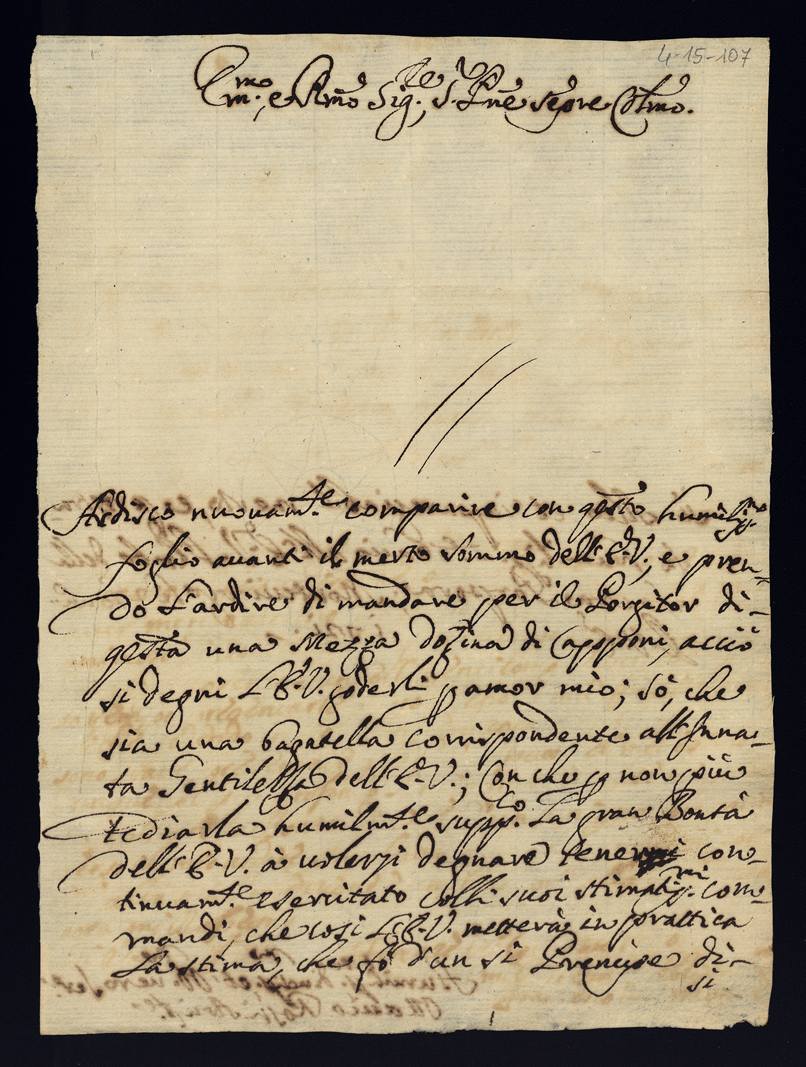 4-15-107
Em.mo e R.mo Sig.re, S.r P.ne sepre Col.mo
Ardisco nuovam.te comparire con q.esto humiliss.mo
foglio avanti il merto sommo dell'E.V., e pren-
do l'ardire di mandare per il Porgitor di-
q.esta una Mezza dozina di Capponi, acciò
si degni L'E.V. goderli p amor mio; sò, che
sia una bagattella corrispondente all'Inna-
ta Gentilezza dell'E.V.; Con che p non più
tediarla humilm.te supp.co La gran Bontà
dell'E.V. à volersi degnare tenermi con-
tinuam.te esercitato colli suoi stimatiss.mi com-
mandi, che così L'E.V. metterà in prattica
La stima, che fò d'un si Prencipe di-
si